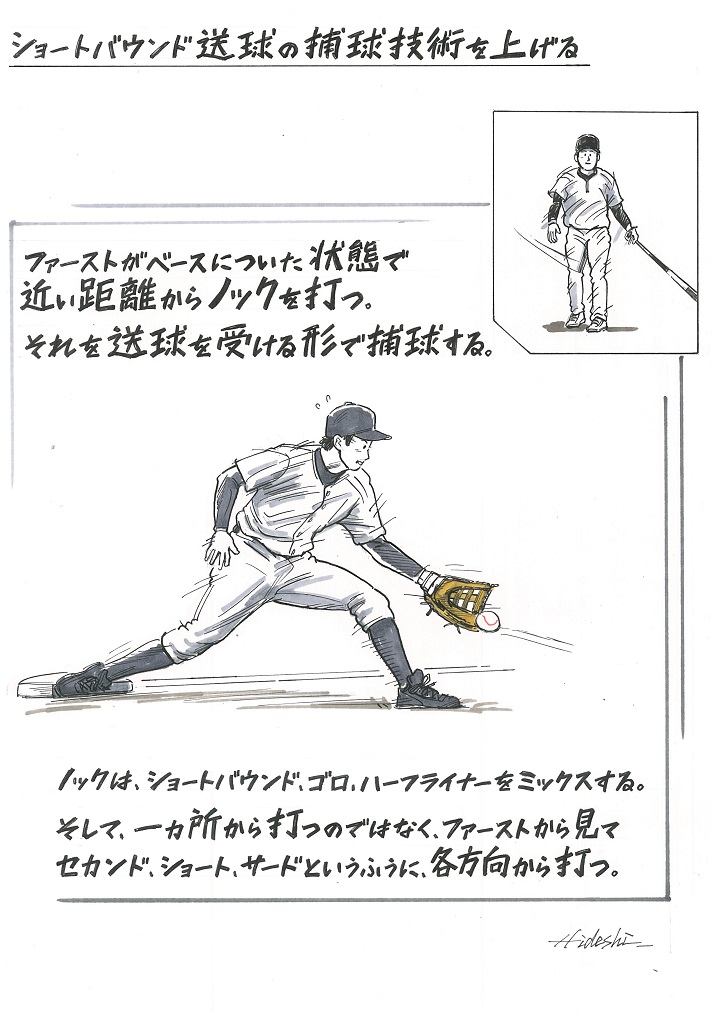 ショートバウンド送球の捕球技術を上げる
ファーストがベースについた状態で
近い距離からノックを打つ。
それを送球を受ける形で捕球する。
ノックは、ショートバウンド、ゴロ、ハーフライナーをミックスする。
そして、一カ所から打つのではなく、ファーストから見て
セカンド、ショート、サードというふうに、各方向から打つ。
Hideshi